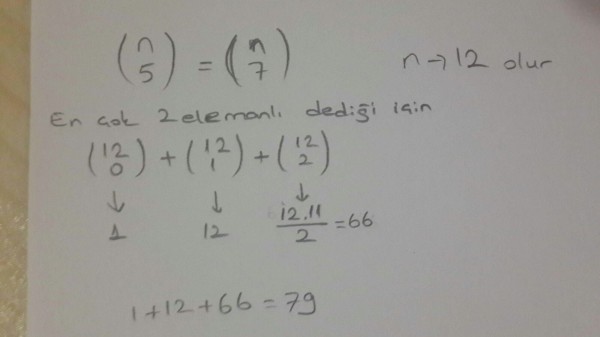 (n 5) = (n 7) n → 12 olur
En çok 2 elemanlı dediği için
(12 0) + (12 1) + (12 2)
↓ ↓ ↓
1 12 12.11/2 = 66
1 + 12 + 66 = 79